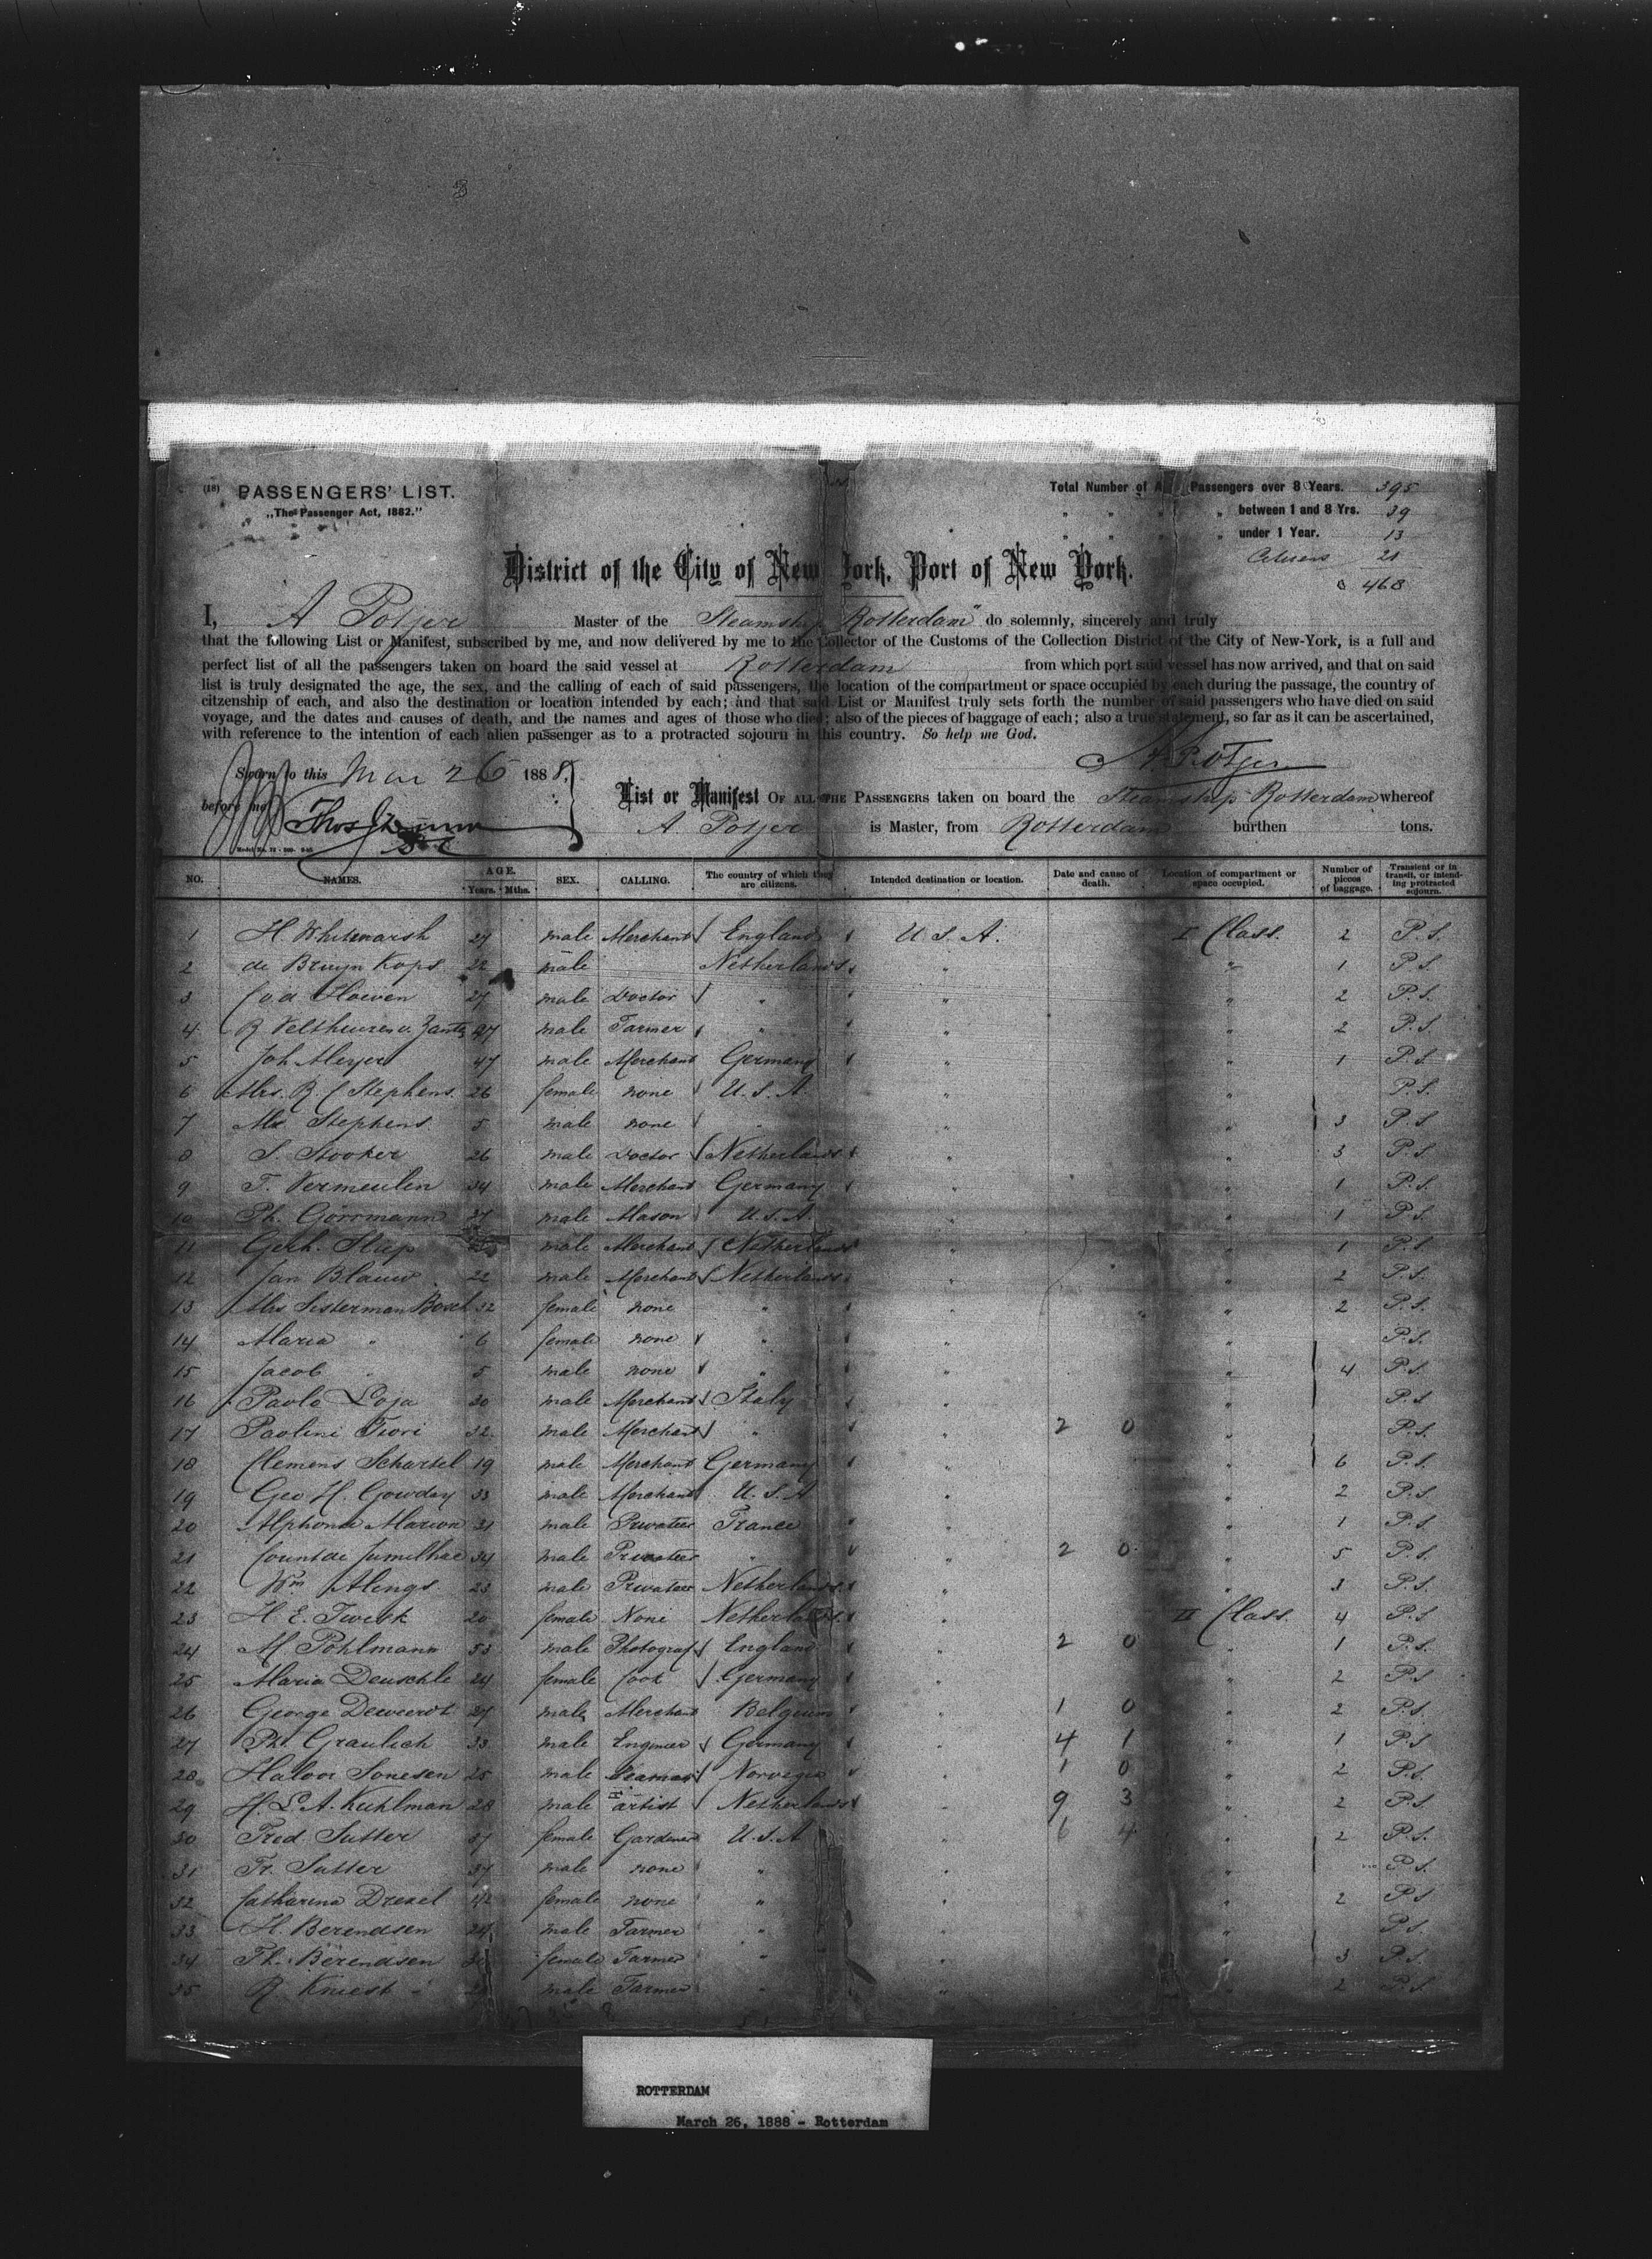 (18) PASSENGERS' LIST.
„The Passenger Act, 1882."
Total Number of Passengers over 8 Years. 395
„ „ „ „ between 1 and 8 Yrs. 39
„ „ „ „ under 1 Year. 13
Citizens 21
468
District of the City of New York, Port of New York.
I, A Potjer Master of the Steamship Rotterdam" do solemnly, sincerely and truly
that the following List or Manifest, subscribed by me, and now delivered by me to the Collector of the Customs of the Collection District of the City of New-York, is a full and
perfect list of all the passengers taken on board the said vessel at Rotterdam from which port said vessel has now arrived, and that on said
list is truly designated the age, the sex, and the calling of each of said passengers, the location of the compartment or space occupied by each during the passage, the country of
citzenship of each, and also the destination or location intended by each; and that said List or Manifest truly sets forth the number of said passengers who have died on said
voyage, and the dates and causes of death, and the names and ages of those who died; also of the pieces of baggage of each; also a true statement, so far as it can be ascertained,
with reference to the intention of each alien passenger as to a protracted sojourn in this country. So help me God.
A Potjer
Sworn to this Mar 26 1888
before me
List or Manifest OF ALL THE PASSENGERS taken on board the Steamship Rotterdam whereof
A Potjer is Master, from Rotterdam burthen tons.
NO. NAMES. AGE. Years. Mths. SEX. CALLING. The country of which they are citizens. Intended destination or location. Date and cause of death. Location of compartment or space occupied. Number of pieces of baggage. Transient or in transit, or intending protracted sojourn.
1 H. Whitmarsh 27 male Merchant England U.S.A. I Class. 2 P.S.
2 de Bruyn Kops 22 male Netherlands „ „ 1 P.S.
3 Hoeven 27 male Doctor „ „ „ 2 P.S.
4 R Velthuizen v. 47 male Farmer „ „ „ 2 P.S.
5 Joh Meyer 47 male Merchant Germany „ „ 1 P.S.
6 Mrs. R. C Stephens 26 female none U.S.A. „ „ P.S.
7 Mr Stephens 5 male none „ „ „ 3 P.S.
8 S. Stooker 26 male Doctor Netherlands „ „ 3 P.S.
9 T. Vermeulen 34 male Merchant Germany „ „ 1 P.S.
10 Ph. Görrmann 37 male Mason U.S.A. „ „ 1 P.S.
11 Gerh. Stiep male Merchant Netherlands „ „ 1 P.S.
12 Jan Blauw 22 male Merchant Netherlands „ „ 2 P.S.
13 Mrs Sisterman 32 female none „ „ „ 2 P.S.
14 Maria „ 6 female none „ „ „ P.S.
15 Jacob „ 5 male none „ „ „ 4 P.S.
16 Paolo Loja 30 male Merchant Italy „ „ P.S.
17 Paolini Fiori 32 male Merchant „ „ 2 0 „ P.S.
18 Clemens Schartel 19 male Merchant Germany „ „ 6 P.S.
19 Geo H. Gowday 33 male Merchant U.S.A „ „ 2 P.S.
20 Alphonse Marion 31 male Privateer France „ „ 1 P.S.
21 Count de Jumilhac 34 male Privateer „ „ 2 0 „ 5 P.S.
22 Wm Alengs 23 male Privateer Netherlands „ „ 3 P.S.
23 H. E. Twisk 20 female None Netherlands „ II Class. 4 P.S.
24 M. Pohlmann 53 male Photograf England „ 2 0 „ 1 P.S.
25 Maria Deuschle 24 female Cook Germany „ „ 2 P.S.
26 George Deweerdt 27 male Merchant Belgium „ 1 0 „ 2 P.S.
27 Ph. Graulich 33 male Engineer Germany „ 4 1 „ 1 P.S.
28 Halvor Sonesen 25 male Seaman Norvegia „ 1 0 „ 2 P.S.
29 H. L. A. Kuhlman 28 male artist Netherlands „ 9 3 „ 2 P.S.
30 Fred Sutter 37 female Gardener U.S.A „ 6 4 „ 2 P.S.
31 Fr. Sutter 37 male none „ „ „ P.S.
32 Catharina Drexel 42 female none „ „ „ 2 P.S.
33 H. Berendsen 24 male Farmer „ „ „ P.S.
34 Th. Berendsen female Farmer „ „ „ 3 P.S.
35 R Kniest male Farmer „ „ „ 2 P.S.
ROTTERDAM
March 26, 1888 - Rotterdam